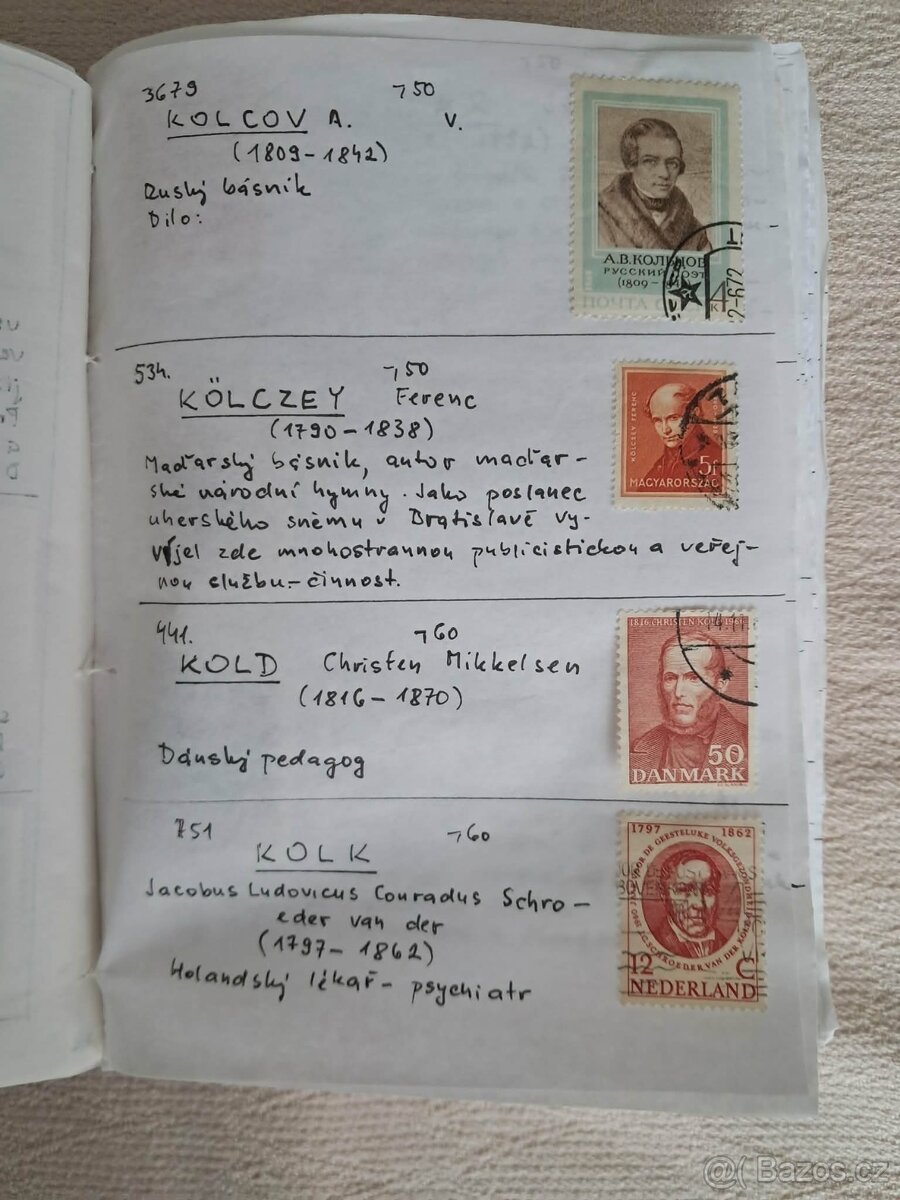 3679 ¬50
KOLCOV A. V.
(1809-1842)
Ruský básník
Dílo:
А.В.КОЛЬЦОВ
РУССКИЙ ПОЭТ
(1809-
ПОЧТА
4
к
2-672
534. ¬50
KÖLCZEY Ferenc
(1790-1838)
Maďarský básník, autor maďar-
ské národní hymny. Jako poslanec
uherského sněmu v Bratislavě vy-
víjel zde mnohostrannou publicistickou a veřej-
nou službu-činnost.
KÖLCSEY FERENC
5f
MAGYARORSZÁG
441. ¬60
KOLD Christen Mikkelsen
(1816-1870)
Dánský pedagog
1816 CHRISTEN KOLD 1966
14.11.
50
DANMARK
751 ¬60
KOLK
Jacobus Ludovicus Conradus Schro-
eder van der
(1797-1862)
Holandský lékař-psychiatr
1797 1862
VOOR DE GEESTELIJKE VOLKSGEZONDHEID
J.L.C. SCHROEDER VAN DER KOLK
12 C
NEDERLAND
@( Bazos.cz